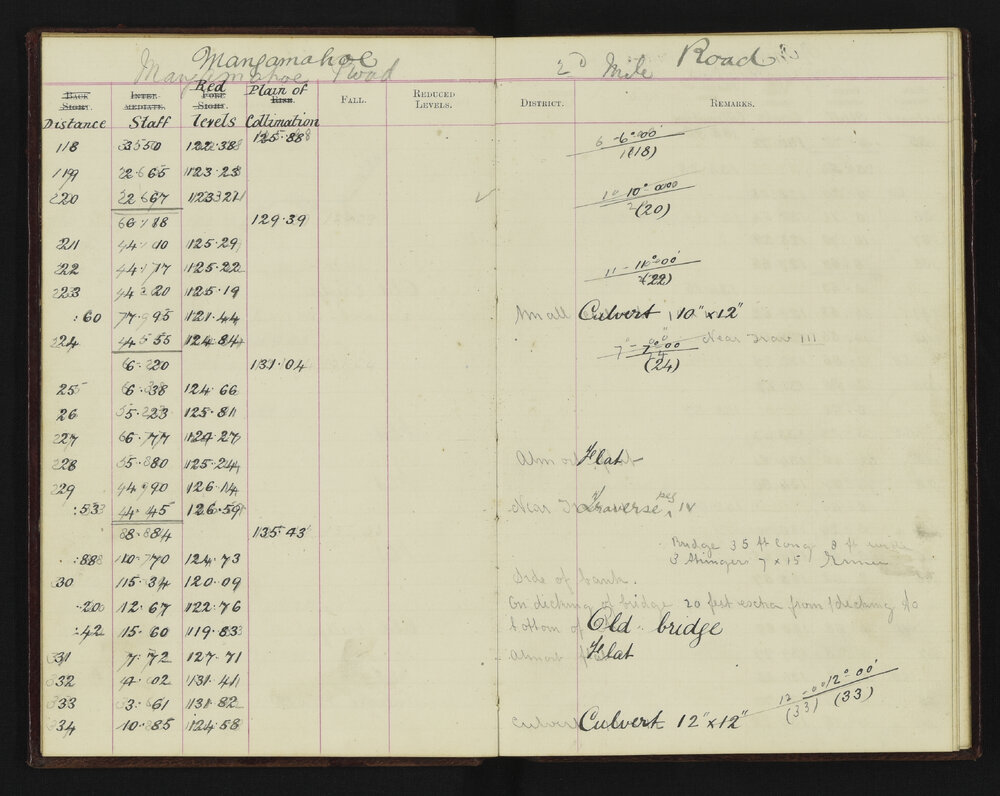 Mangamahoe 2nd Mile Road
Mangamahoe Road
Back Sight. Inter-mediate. Fore Sight. Rise. Fall. Reduced Levels. District. Remarks.
Distance Staff Red levels Plain of Collimation
125.88
18 3.50 122.38 6-6°00' (18)
19 2.65 123.23
20 2.67 123.21 1°10°00' (20)
6.18 129.39
21 4.10 125.29
22 4.17 125.22 11-11°00' (22)
23 4.20 125.19
:60 7.95 121.44 Small Culvert 10" x 12"
24 4.55 124.84 7°-7°00' (24) Near Trav III
6.20 131.04
25 6.38 124.66
26 5.23 125.81
27 6.77 124.27
28 5.80 125.24 Almost Flat
29 4.90 126.14
:53 4.45 126.59 Near Traverse peg IV
8.84 135.43
Bridge 35 ft long 8 ft wide
:88 10.70 124.73 3 Stringers 7 x 15 Rimu
30 15.34 120.09 Side of bank.
.20 12.67 122.76 On decking of bridge 20 feet from decking to
:42 15.60 119.83 bottom of Old bridge
31 7.72 127.71 Almost Flat
32 4.02 131.41
33 3.61 131.82 12°-12°00' (33) (33)
34 10.85 124.58 Culvert Culvert 12" x 12"